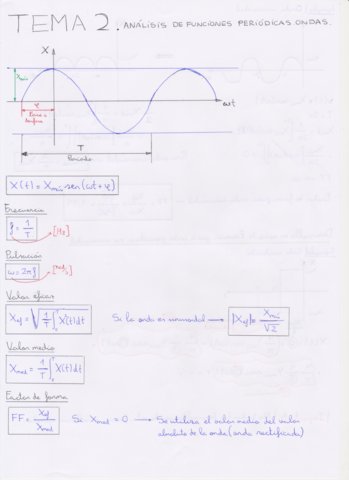 TEMA 2. ANÁLISIS DE FUNCIONES PERIÓDICAS. ONDAS.
X
Xmáx
φ
Fase o
desfase
ωt
T
Periodo
X(t) = Xmáx sen(ωt + φ)
Frecuencia
f = 1/T → [Hz]
Pulsación
ω = 2πf → [rad/s]
Valor eficaz
Xef = √(1/T ∫₀ᵀ X²(t) dt) Si la onda es sinusoidal → |Xef| = Xmáx/√2
Valor medio
Xmed = 1/T ∫₀ᵀ X(t) dt
Factor de forma
FF = Xef/Xmed Si Xmed = 0 → Se utiliza el valor medio del valor
absoluto de la onda (onda rectificada)